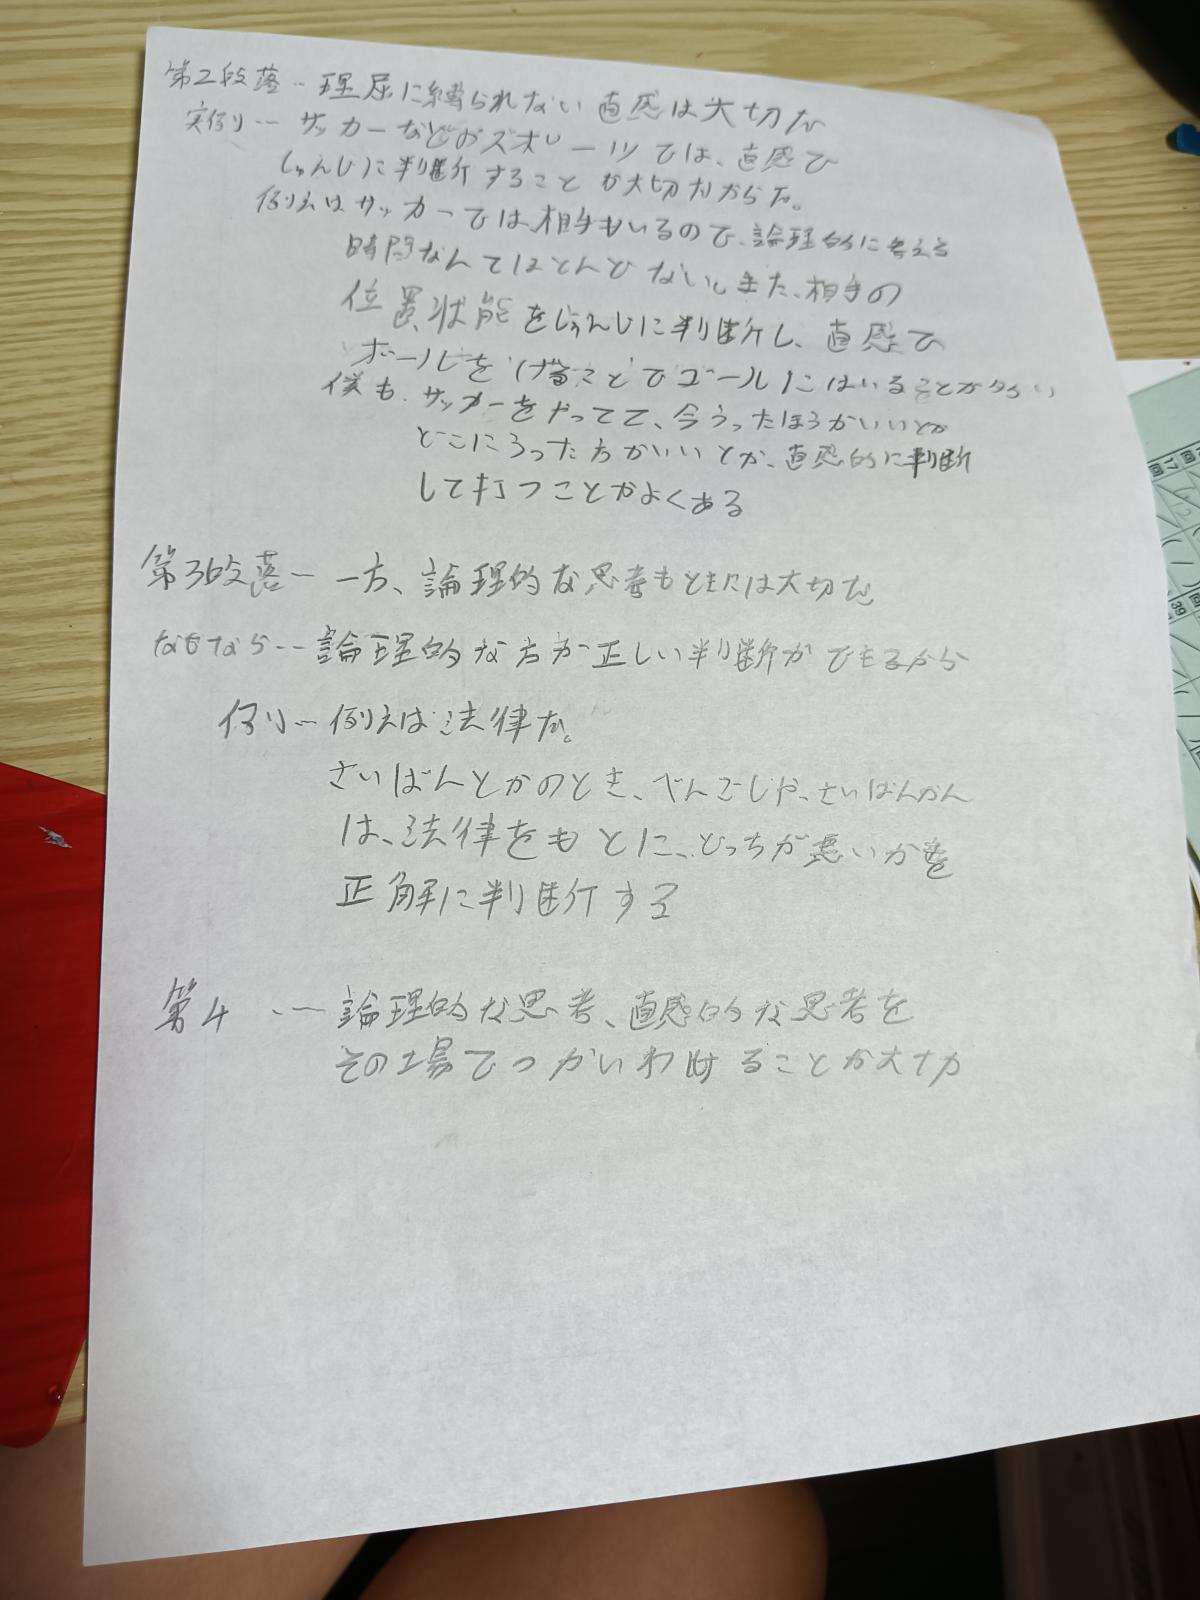 第2段落‥理屈に縛られない直感は大切だ
実例‥サッカーなどのスポーツでは、直感で
しゅんじに判断することが大切だからだ。
例えばサッカーでは相手もいるので、論理的に考える
時間なんてほとんどない。また、相手の
位置、状態をしゅんじに判断し、直感で
ボールをけることでゴールにはいることが多い
僕も、サッカーをやってて、今うったほうがいいとか
どこにうった方がいいとか、直感的に判断
して打つことがよくある
第3段落‥一方、論理的な思考もときには大切だ
なぜなら‥論理的な方が正しい判断ができるから
例‥例えば法律だ。
さいばんとかのとき、べんごしや、さいばんかん
は、法律をもとに、どっちが悪いかを
正解に判断する
第4‥論理的な思考、直感的な思考を
その場でつかいわけることが大切